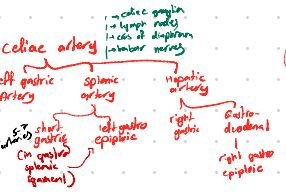 → celiac ganglia
→ lymph nodes
→ crus of diaphram
→ lumbar nerves
Celiac artery
left gastric
Artery
Splenic
artery
Hepatic
artery
5-7
arteries
short
gastric
(in gastro
splenic
ligament)
left gastro
epiploic
right
gastric
Gastro-
duodenal
right gastro
epiploic